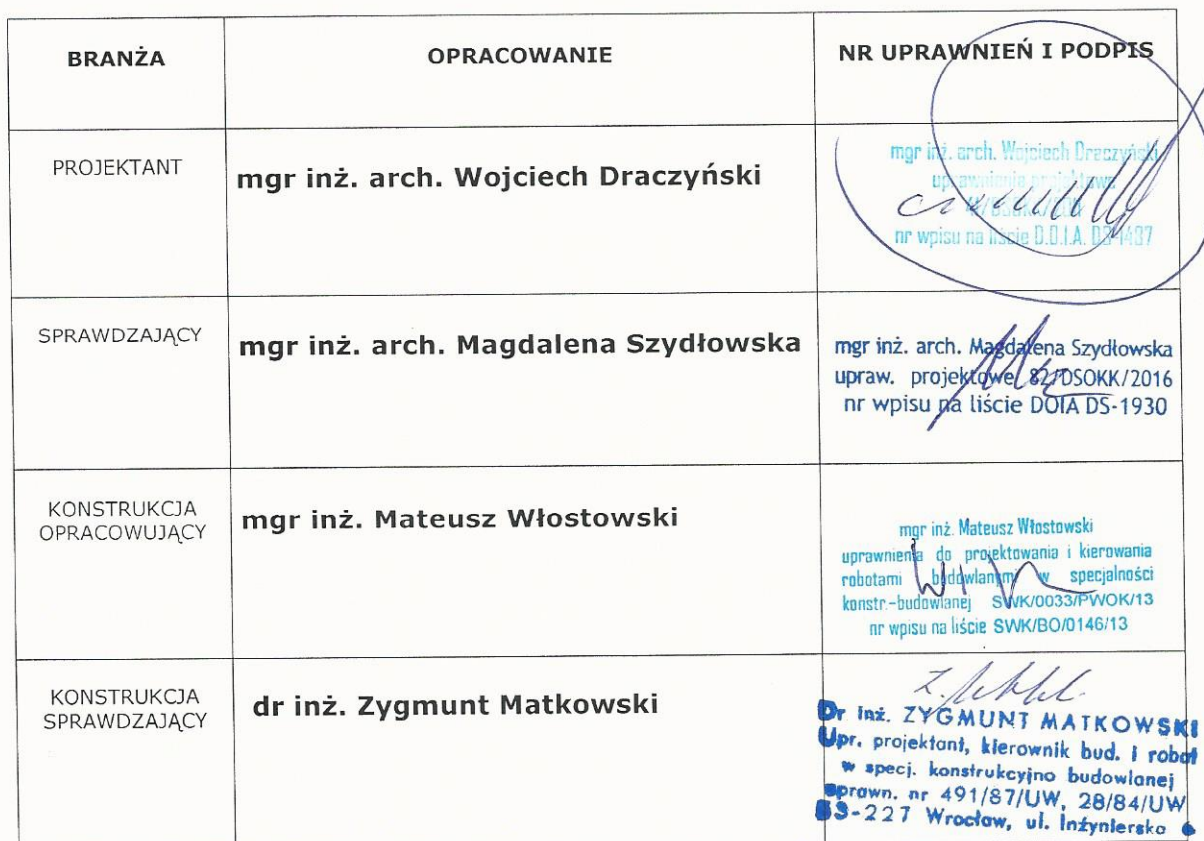 BRANŻA
OPRACOWANIE
NR UPRAWNIEŃ I PODPIS
PROJEKTANT
mgr inż. arch. Wojciech Draczyński
mgr inż. arch. Wojciech Draczyński
uprawnienia projektowe
nr wpisu na liście D.O.I.A. DS-1437
SPRAWDZAJĄCY
mgr inż. arch. Magdalena Szydłowska
mgr inż. arch. Magdalena Szydłowska
upraw. projektowe 82/DSOKK/2016
nr wpisu na liście DOIA DS-1930
KONSTRUKCJA
OPRACOWUJĄCY
mgr inż. Mateusz Włostowski
mgr inż. Mateusz Włostowski
uprawnienia do projektowania i kierowania
robotami budowlanymi w specjalności
konstr.-budowlanej SWK/0033/PWOK/13
nr wpisu na liście SWK/BO/0146/13
KONSTRUKCJA
SPRAWDZAJĄCY
dr inż. Zygmunt Matkowski
Dr inż. ZYGMUNT MATKOWSKI
Upr. projektant, kierownik bud. i robót
w specj. konstrukcyjno budowlanej
uprawn. nr 491/87/UW, 28/84/UW
53-227 Wrocław, ul. Inżynierska 6